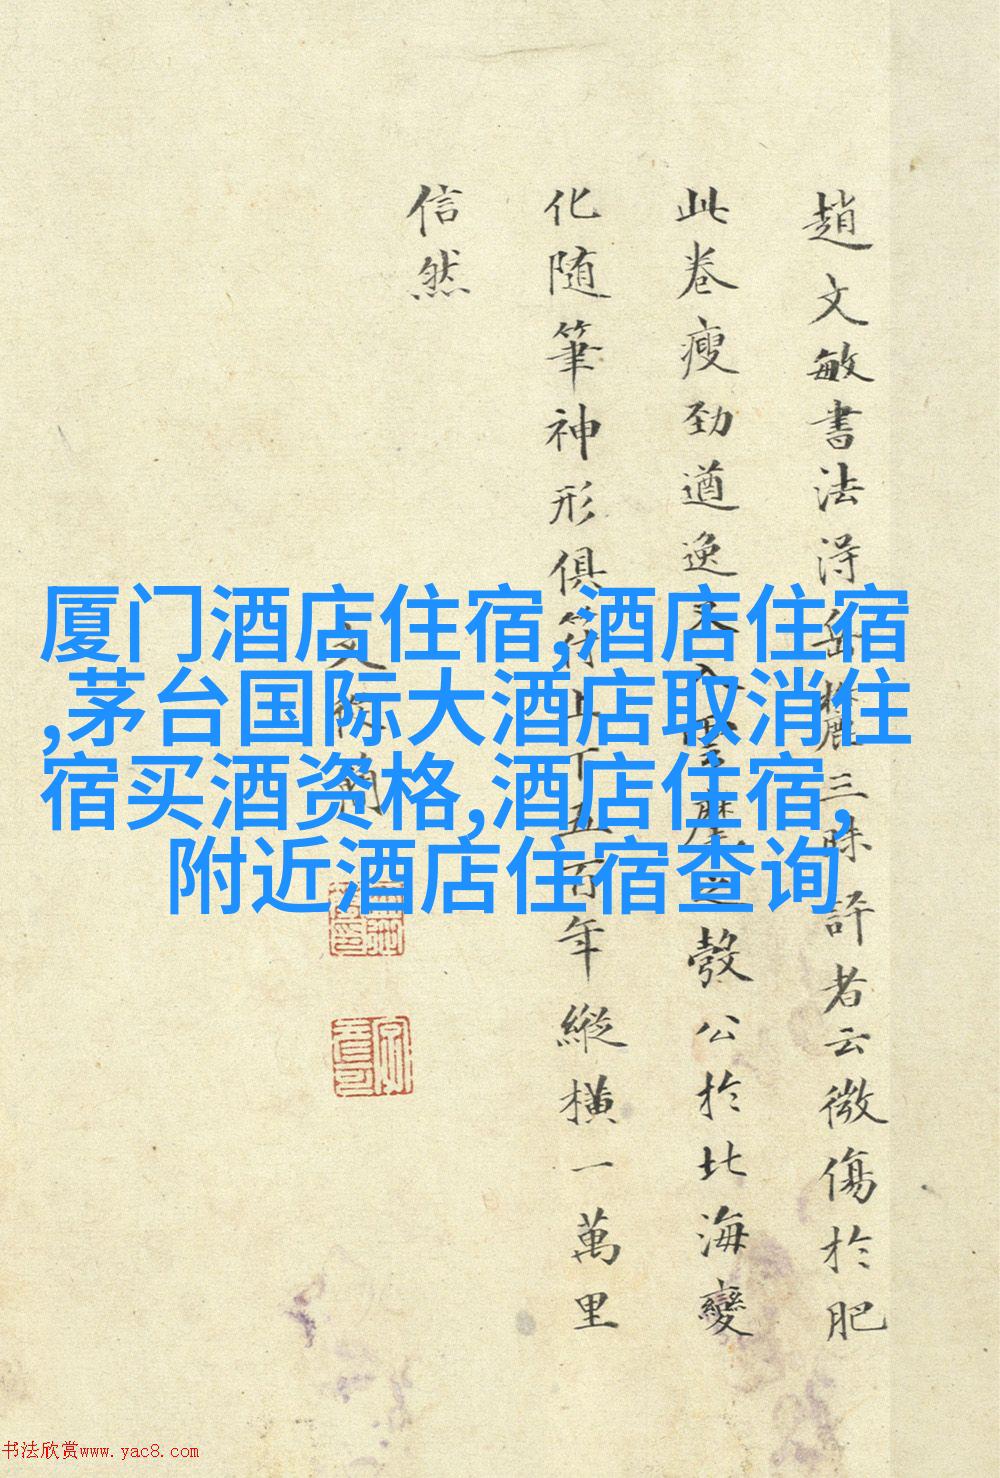 趙文敏書法淂岳麓三昧評者云微傷於肥
此卷瘦勁遒逸又入雲麾之彀公於北海變
化随筆神形俱符上下五百年縱橫一萬里
信然
文從簡
厦门酒店住宿,酒店住宿
,茅台国际大酒店取消住
宿买酒资格,酒店住宿,
附近酒店住宿查询
书法欣赏www.yac8.com